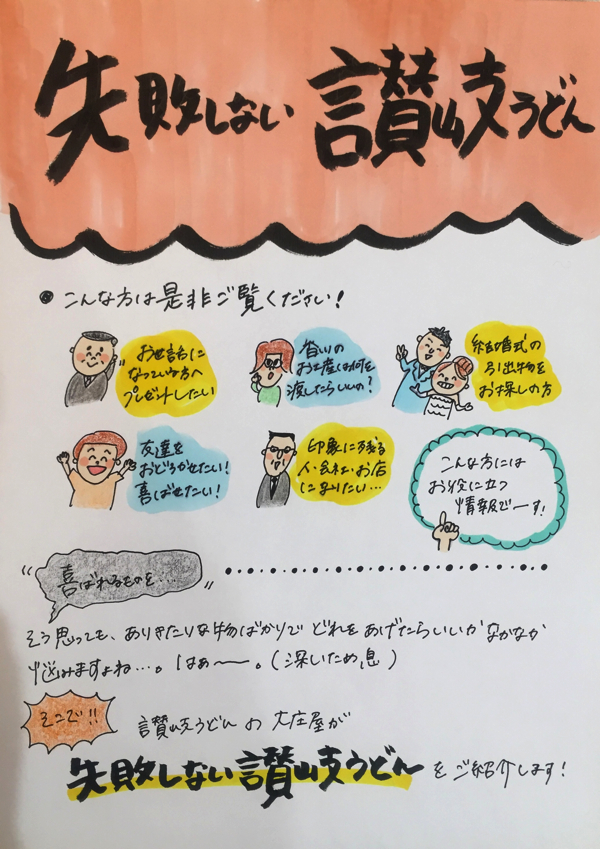 失敗しない 讃岐うどん
● こんな方は是非ご覧ください!
お世話に
なっている方へ
プレゼントしたい
香川の
お土産は何を
渡したらいいの?
結婚式の
引出物を
お探しの方
友達を
おどろかせたい!
喜ばせたい!
印象に残る
人・会社・お店
になりたい…
こんな方には
お役に立つ
情報でーす!
"喜ばれるものを…"
そう思っても、ありきたりな物ばかりで どれをあげたらいいかなかなか
悩みますよね…。はぁ〜。(深いため息)
そこで!!
讃岐うどんの大庄屋が
失敗しない讃岐うどん をご紹介します!